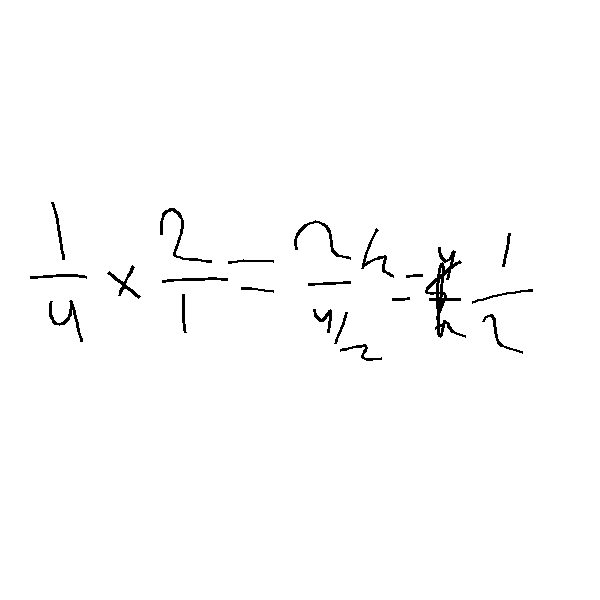 1/4 × 2/1 = 2/2 / 4/2 = 1/2